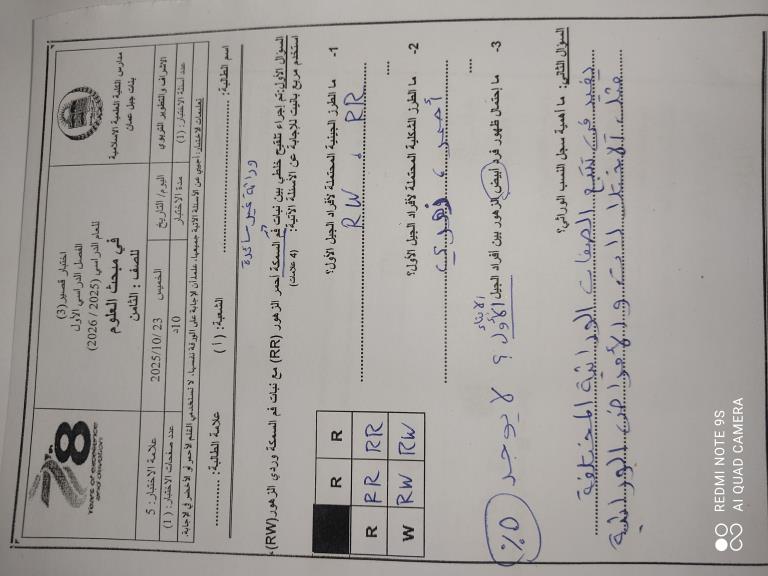 مدارس الكلية العلمية الإسلامية
بنات جبل عمان
اختبار قصير (3)
الفصل الدراسي الأول
للعام الدراسي (2025 / 2026)
في مبحث العلوم
للصف : الثامن
78
Years of excellence
and innovation
الاشراف والتطوير التربوي
اليوم/ التاريخ
الخميس
2025/10/ 23
علامة الاختبار: 5
عدد أسئلة الاختبار: (1)
مدة الاختبار
10د
عدد صفحات الاختبار: (1)
تعليمات الاختبار: أجيبي عن الأسئلة الآتية جميعها، علما بأن الإجابة على الورقة نفسها، لا تستخدمي القلم الأحمر أو الأخضر في الإجابة.
اسم الطالبة: .......... الشعبة: ( أ ) علامة الطالبة: ..........
وراثة غير سائدة
السؤال الأول: تم إجراء تلقيح خلطي بين نبات فم السمكة أحمر الزهور (RR) مع نبات فم السمكة وردي الزهور (RW)،
استخدم مربع بانيت للإجابة عن الأسئلة الآتية: (4 علامات)
R R
R RR RR
W RW RW
1- ما الطرز الجينية المحتملة لأفراد الجيل الأول؟
RW ، RR
2- ما الطرز الشكلية المحتملة لأفراد الجيل الأول؟
أحمر ، زهري
3- ما احتمال ظهور فرد أبيض الزهور بين أفراد الجيل الأول ؟ لا يوجد 0%
الأبناء
السؤال الثاني: ما أهمية سجل النسب الوراثي؟
يفيد في تتبع الصفات الوراثية المختلفة
مثل الاختلالات والأمراض الوراثية
REDMI NOTE 9S
AI QUAD CAMERA